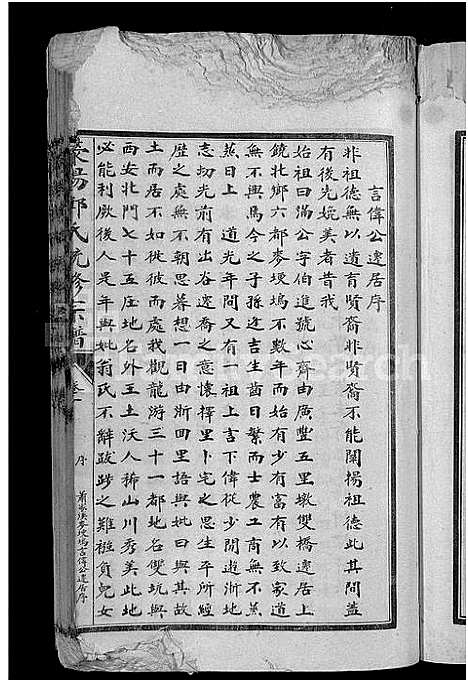 言偉公遷居序
非祖德無以遺育賢裔非賢裔不能闡揚祖德此其間蓋
有後先媲美者昔我
始祖曰滿公字伯進號心齊由廣豐五里墩雙橋遷居上
饒北鄉六都麥埂塢不數年而始有少有富有以致家道
無不興焉今之子孫迄吉生齒日繁而士農工商無不蒸
蒸日上 道光年間又有 祖上言下偉從少閒遊浙地
志切光前有出谷遷喬之意懷擇里卜宅之思生平所經
歷之處無不朝思暮想一日由浙回里語與妣曰與其故
土而居不如從彼而處我觀龍游三十一都地名雙坑與
西安北門七十五庄地名外王土沃人稀山川秀美此地
必能利厥後人是年與妣翁氏不辭跋踄之難襁負兒女
滎陽鄭氏統修宗譜
卷一
序
言偉公遷居序